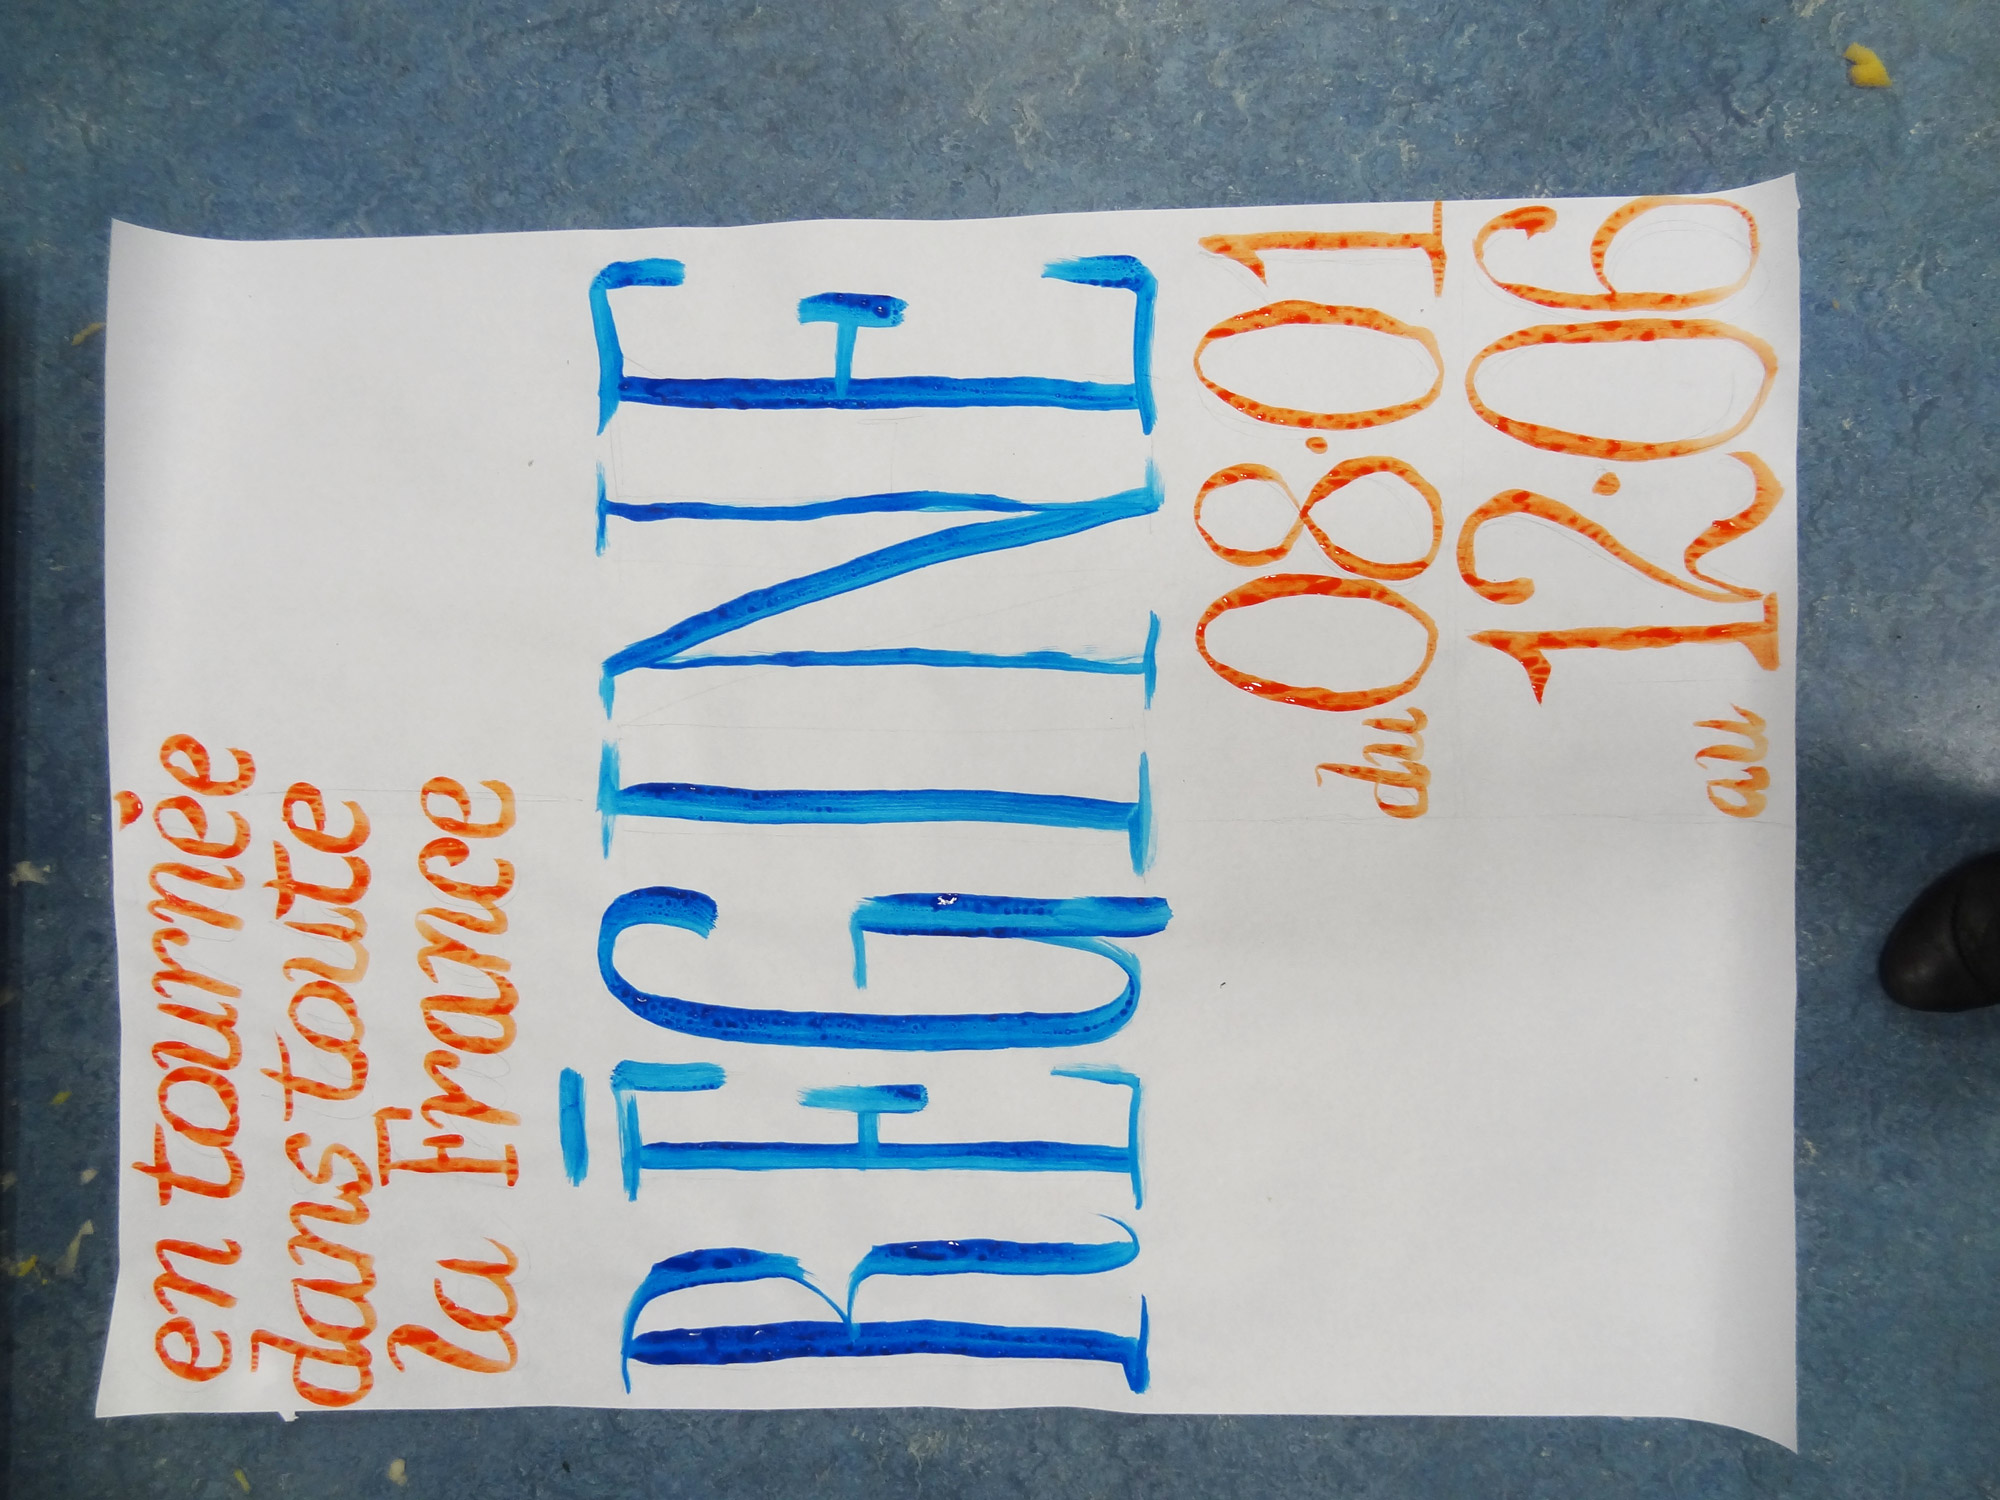 en tournée
dans toute
la France
RĒGINE
du 08.01
au 12.06